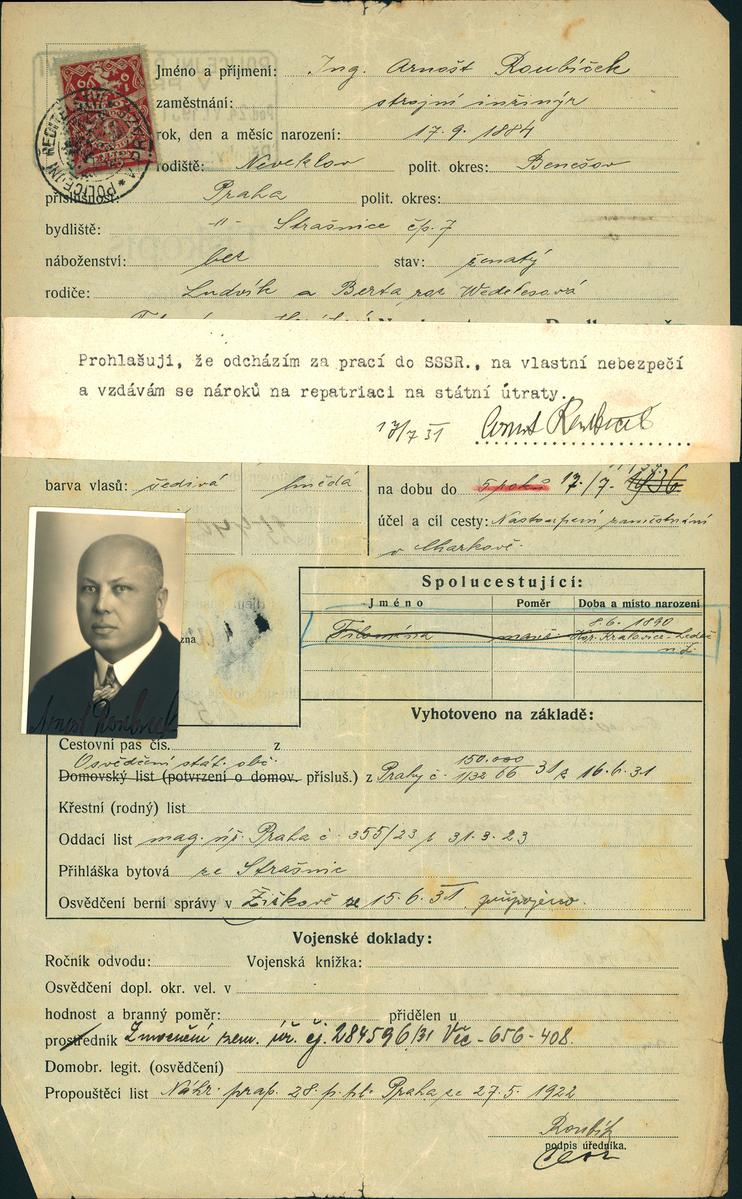 Jméno a příjmení: Ing. Arnošt Roubíček
zaměstnání: strojní inžinýr
rok, den a měsíc narození: 17.9.1884
rodiště: Neveklov polit. okres: Benešov
příslušnost: Praha polit. okres:
bydliště: -"- Strašnice čp. 7
náboženství: bez stav: ženatý
rodiče: Ludvík a Berta roz
Prohlašuji, že odcházím za prací do SSSR., na vlastní nebezpečí
a vzdávám se nároků na repatriaci na státní útraty.
17/7 31
barva vlasů: šedivá hnědá
na dobu do 17./7. 1936
účel a cíl cesty: Nastoupení zaměstnání
v Charkově.
Spolucestující:
Jméno Poměr Doba a místo narození
8.6. 1890
Filoména manž.
zna
Arnošt Roubíček
Vyhotoveno na základě:
Cestovní pas čís. z
Osvědčení stát. obč.
150.000
Domovský list (potvrzení o domov. přísluš.) z Prahy č. 31 z 16.6.31
Křestní (rodný) list
Oddací list mag. Praha č. 355/23 z 31.3.23
Přihláška bytová ze Strašnic
Osvědčení berní správy v Žižkově ze 15.6.31 připojeno.
Vojenské doklady:
Ročník odvodu: Vojenská knížka:
Osvědčení dopl. okr. vel. v
hodnost a branný poměr: přidělen u
prostředník Zmocnění zem. úř. čj. 284596/31 Vec - 656 - 408.
Domobr. legit. (osvědčení)
Propouštěcí list Náhr. prap. 28 p. pl. Praha ze 27.5.1922
podpis úředníka.